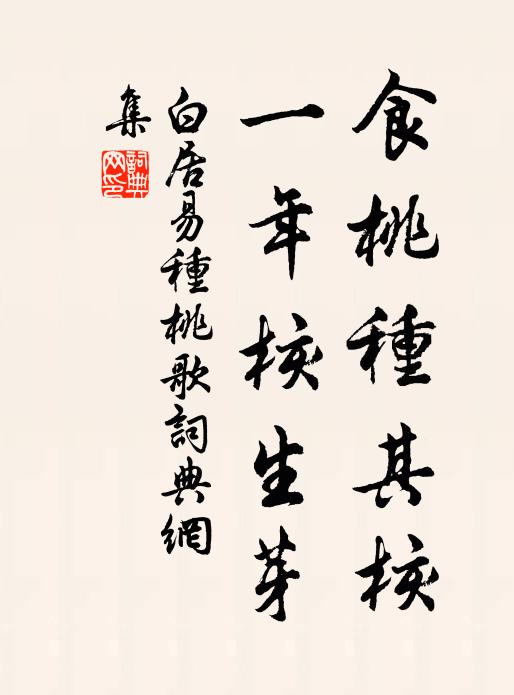 食桃種其核
一年核生芽
白居易種桃歌詞典網
集
詞典
网印